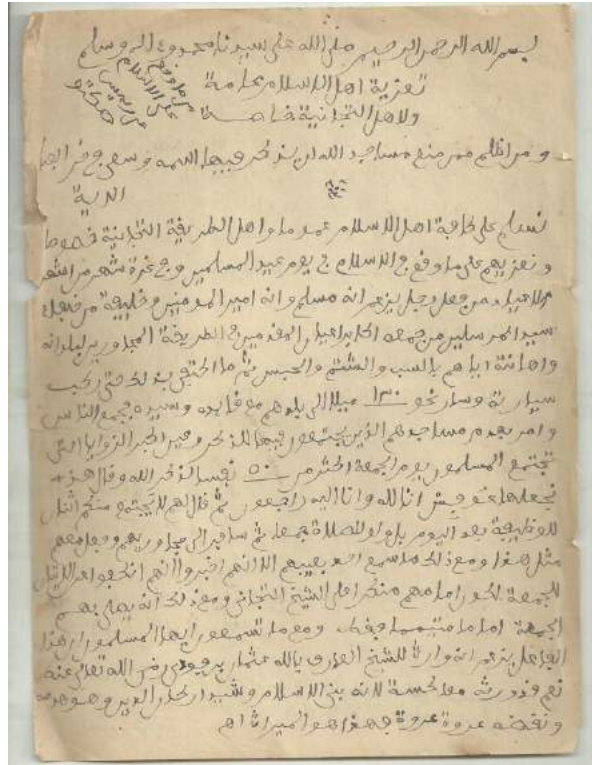 بسم الله الرحمن الرحيم صلى الله على سيدنا محمد وءاله وسلم
تعزية اهل الاسلام عامة
ولاهل التجانية خاصة
على ما وقع
على الاسلام
من رئيس
ومن اظلم ممن منع مساجد الله ان يذكر فيها اسمه وسعى في خرابها
الاية
نسلم على كافة اهل الاسلام عموما واهل الطريقة التجانية خصوصا
ونعزيهم على ما وقع في الاسلام في يوم عيد المسلمين وفي غرة شهر من اشهر
من رجل يزعم انه مسلم وانه امير المومنين وخليفة من
سيد المرسلين من جمعه اكابر اعيان المقدمين في الطريقة المجاورين لبلده
واهانته اياهم بالسب والشتم والحبس ثم ما اكتفى بذلك حتى ركب
سيارته وسار نحو ١٣٠ ميلا الى بلدهم مع وسيده فجمع الناس
وامر بهدم مساجدهم الذين يجتمعون فيها للذكر وهي اكبر الزوايا التي
تجتمع المسلمون يوم الجمعة اكثر من ٥٠٠ نفسا لذكر الله وقال هذه
نجعلها انا لله وانا اليه راجعون ثم قال لهم لا يجتمع منكم اثنان
للوظيفة بعد اليوم بل ولا لصلاة جمعة ثم سافر الى مجاوريهم وفعل معهم
مثل هذا ومع ذلك ما سمع احد بعيبهم الا انهم اخبروا انهم
للجمعة لكون امامهم منكرا على الشيخ التجاني ومع ذلك انه يصلى بهم
الجمعة اماما متيمما ومع ما تسمعون ايها المسلمون ان هذا
الفاعل يزعم انه وارث للشيخ العارف بالله عثمان بن فودي رضي الله تعالى عنه
نعم قد ورثه معاكسة لانه بنى الاسلام وشيد اركان الدين وهو هدمه
ونقضه عروة عروة فهذا هو الميراث اهـ